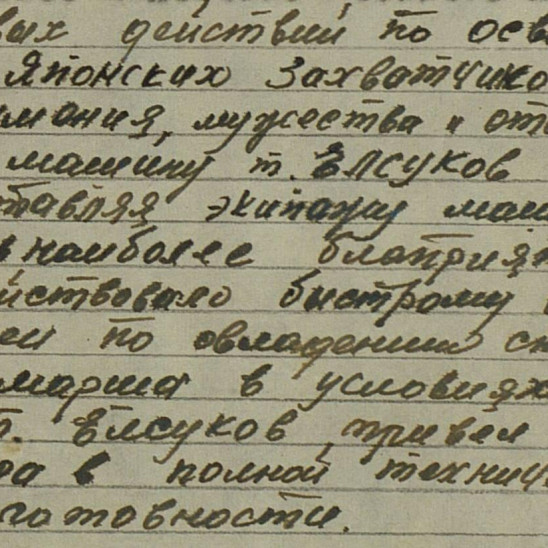 вых действий по осв
Японских захватчико
мания, мужества и отв
машину т. Елсуков
тавляя экипажу маш
в наиболее благоприя
йствовало быстрому
ей по овладению
марша в условиях
т. Елсуков, привел
ра в полной технич
готовности.